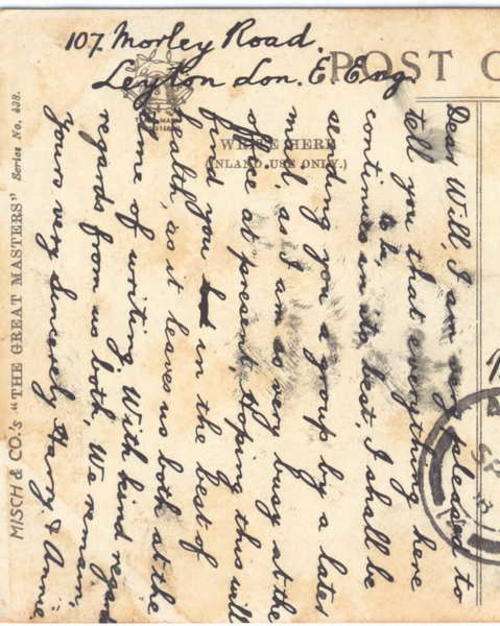 107. Morley Road.
Leyton Lon. E. Eng.
POST C
WRITE HERE
(INLAND USE ONLY.)
Dear Will, I am very pleased to
tell you that everything here
to be,
continues in its best. I shall be
sending you a group by a later
mail, as I am so very busy at the
office at present, hoping this will
find you in the best of
health, as it leaves us both at the
time of writing. With kind regards
regards from us both, We remain,
yours very sincerely Harry & Annie
MISCH & CO.'s "THE GREAT MASTERS" Series No. 428.